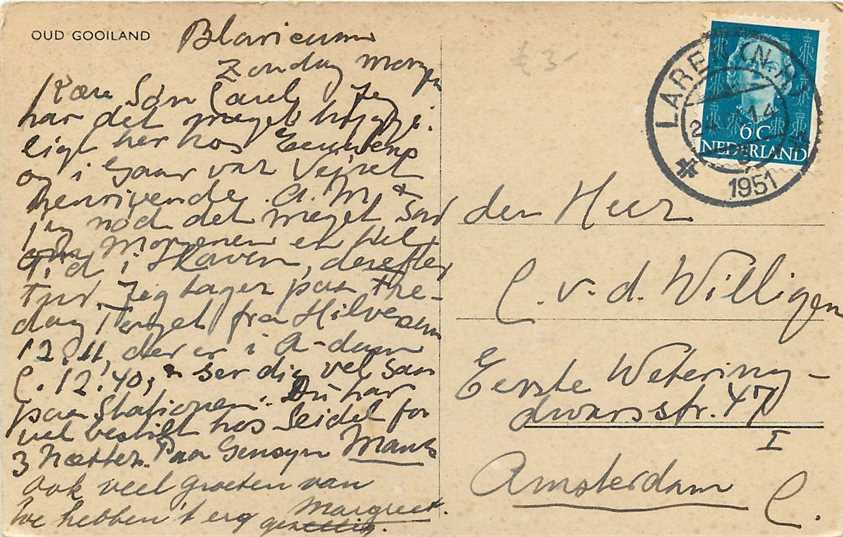 OUD GOOILAND
Blaricum
Zondag morgen
Kære Søn Carel, Jeg
har det meget hygge-
ligt her hos
og i Gaar var Vejret
henrivende. A.M. &
jeg nød det meget, sad
om Morgenen en hel
Tid i Haven, derefter
Tur. Jeg tager paa Fre-
dag Toget fra Hilversum
12.11, der er i A-dam
C. 12.40, & ser dig vel saa
paa Stationen. Du har
vel bestilt hos Seidel for
3 Nætter. Paa Gensyn
ook veel groeten van
Margreet.
we hebben 't erg gezellig.
LAREN (N.H.)
1951
6 C
NEDERLAND
den Heer
C. v. d. Willigen
Eerste Wetering-
dwarsstr. 47
I
Amsterdam C.